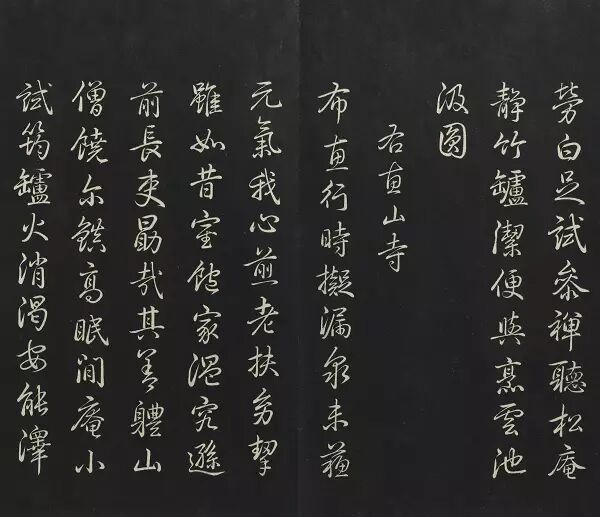 勞白足試參禪聽松庵
靜竹鑪潔便與烹雲池
汲圓
右惠山寺
布惠行時擬漏泉未蘓
元氣我心煎老扶幼挈
雖如昔室飽家溫究遜
前長吏勗哉其善體山
僧饒尓高眠閒庵小
試筠鑪火消渴安能澤